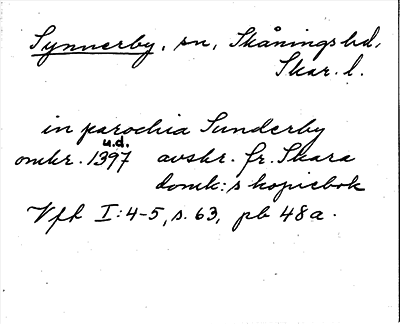 Synnerby, sn, Skånings hd,
Skar. l.
in parochia Sunderby
u.d.
omkr. 1397 avskr. fr. Skara
domk:s kopiebok
Vft I:4-5, s. 63, pb 48a.